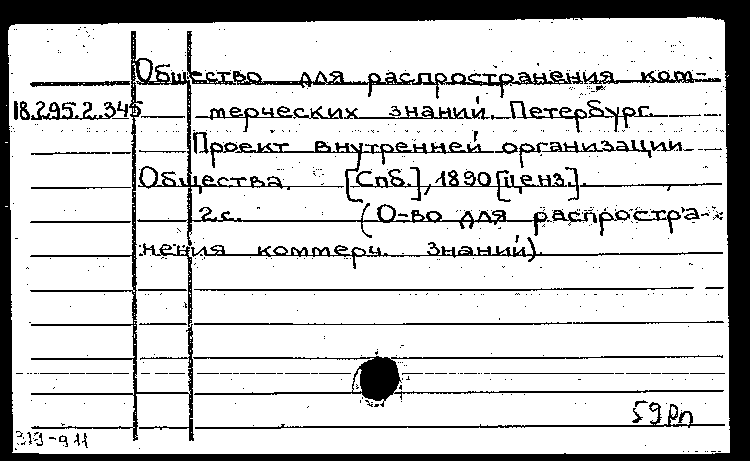 Общество для распространения ком-
18.295.2.345 мерческих знаний. Петербург.
Проект внутренней организации
Общества. [Спб.], 1890 [ценз.].
2 с. (О-во для распростра-
нения коммерч. знаний).
59 Рп
319-911